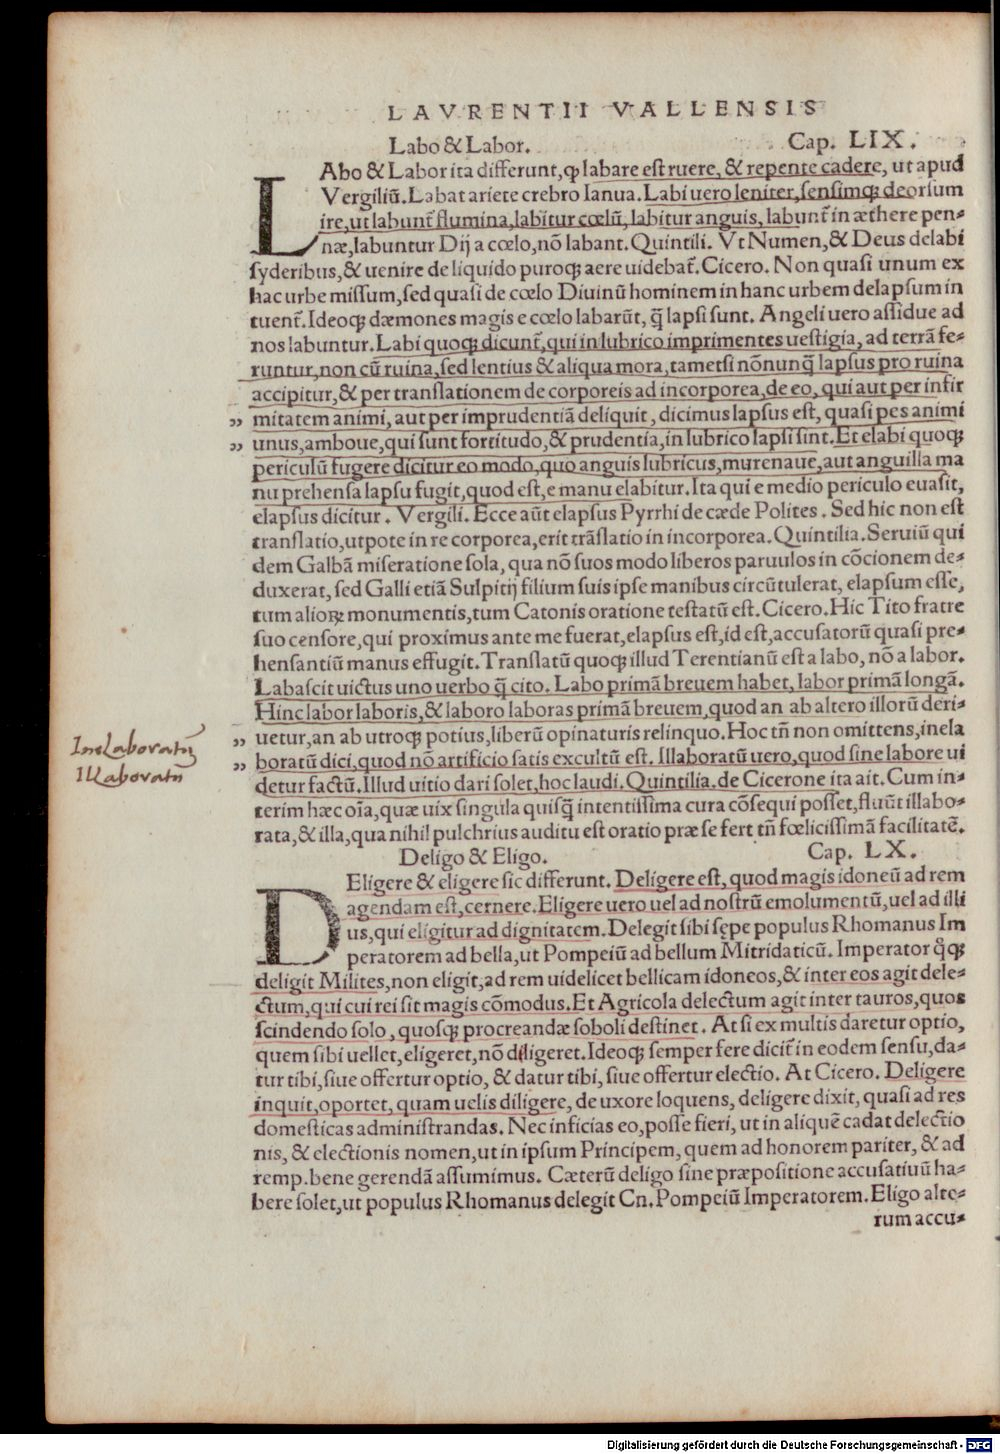 LAVRENTII VALLENSIS
Labo & Labor. Cap. LIX.
LAbo & Labor ita differunt, ꝙ labare est ruere, & repente cadere, ut apud
Vergiliū. Labat ariete crebro Ianua. Labi uero leniter, sensimq́; deorsum
ire, ut labunt᷑ flumina, labitur cœlū, labitur anguis, labunt᷑ in æthere pen-
næ, labuntur Dij a cœlo, nō labant. Quintili. Vt Numen, & Deus delabi
syderibus, & uenire de liquido puroq́; aere uidebat᷑. Cicero. Non quasi unum ex
hac urbe missum, sed quasi de cœlo Diuinū hominem in hanc urbem delapsum in
tuent᷑. Ideoq́; dæmones magis e cœlo labarūt, q̄ lapsi sunt. Angeli uero assidue ad
nos labuntur. Labi quoq́; dicunt᷑, qui in lubrico imprimentes uestigia, ad terrā fe-
runtur, non cū ruina, sed lentius & aliqua mora, tametsi nōnunq̄ lapsus pro ruina
accipitur, & per translationem de corporeis ad incorporea, de eo, qui aut per infir
„ mitatem animi, aut per imprudentiā deliquit, dicimus lapsus est, quasi pes animi
„ unus, amboue, qui sunt fortitudo, & prudentia, in lubrico lapsi sint. Et elabi quoq́;
periculū fugere dicitur eo modo, quo anguis lubricus, murenaue, aut anguilla ma
nu prehensa lapsu fugit, quod est, e manu elabitur. Ita qui e medio periculo euasit,
elapsus dicitur. Vergili. Ecce aūt elapsus Pyrrhi de cæde Polites. Sed hic non est
translatio, utpote in re corporea, erit trāslatio in incorporea. Quintilia. Seruiū qui
dem Galbā miseratione sola, qua nō suos modo liberos paruulos in cōcionem de-
duxerat, sed Galli etiā Sulpitij filium suis ipse manibus circūtulerat, elapsum esse,
tum alioꝝ monumentis, tum Catonis oratione testatū est. Cicero. Hic Tito fratre
suo censore, qui proximus ante me fuerat, elapsus est, id est, accusatorū quasi pre-
hensantiū manus effugit. Translatū quoq́; illud Terentianū est a labo, nō a labor.
Labascit uictus uno uerbo q̄ cito. Labo primā breuem habet, labor primā longā.
Hinc labor laboris, & laboro laboras primā breuem, quod an ab altero illorū deri-
„ uetur, an ab utroq́; potius, liberū opinaturis relinquo. Hoc tñ non omittens, inela
„ boratū dici, quod nō artificio satis excultū est. Illaboratū uero, quod sine labore ui
detur factū. Illud uitio dari solet, hoc laudi. Quintilia. de Cicerone ita ait. Cum in-
terim hæc oīa, quæ uix singula quisq̄ intentissima cura cōsequi posset, fluūt illabo-
rata, & illa, qua nihil pulchrius auditu est oratio præ se fert tñ fœlicissimā facilitatē.
IneLaboratū
ILLaboratū
Deligo & Eligo. Cap. LX.
DEligere & eligere sic differunt. Deligere est, quod magis idoneū ad rem
agendam est, cernere. Eligere uero uel ad nostrū emolumentū, uel ad illi
us, qui eligitur ad dignitatem. Delegit sibi sępe populus Rhomanus Im
peratorem ad bella, ut Pompeiū ad bellum Mitridaticū. Imperator qͦq́;
deligit Milites, non eligit, ad rem uidelicet bellicam idoneos, & inter eos agit dele-
ctum, qui cui rei sit magis cōmodus. Et Agricola delectum agit inter tauros, quos
scindendo solo, quosq́; procreandæ soboli destinet. At si ex multis daretur optio,
quem sibi uellet, eligeret, nō deligeret. Ideoq́; semper fere dicit᷑ in eodem sensu, da-
tur tibi, siue offertur optio, & datur tibi, siue offertur electio. At Cicero. Deligere
inquit, oportet, quam uelis diligere, de uxore loquens, deligere dixit, quasi ad res
domesticas administrandas. Nec inficias eo, posse fieri, ut in aliquē cadat delectio
nis, & electionis nomen, ut in ipsum Principem, quem ad honorem pariter, & ad
remp. bene gerendā assumimus. Cæterū deligo sine præpositione accusatiuū ha-
bere solet, ut populus Rhomanus delegit Cn. Pompeiū Imperatorem. Eligo alte-
rum accu-
Digitalisierung gefördert durch die Deutsche Forschungsgemeinschaft - DFG